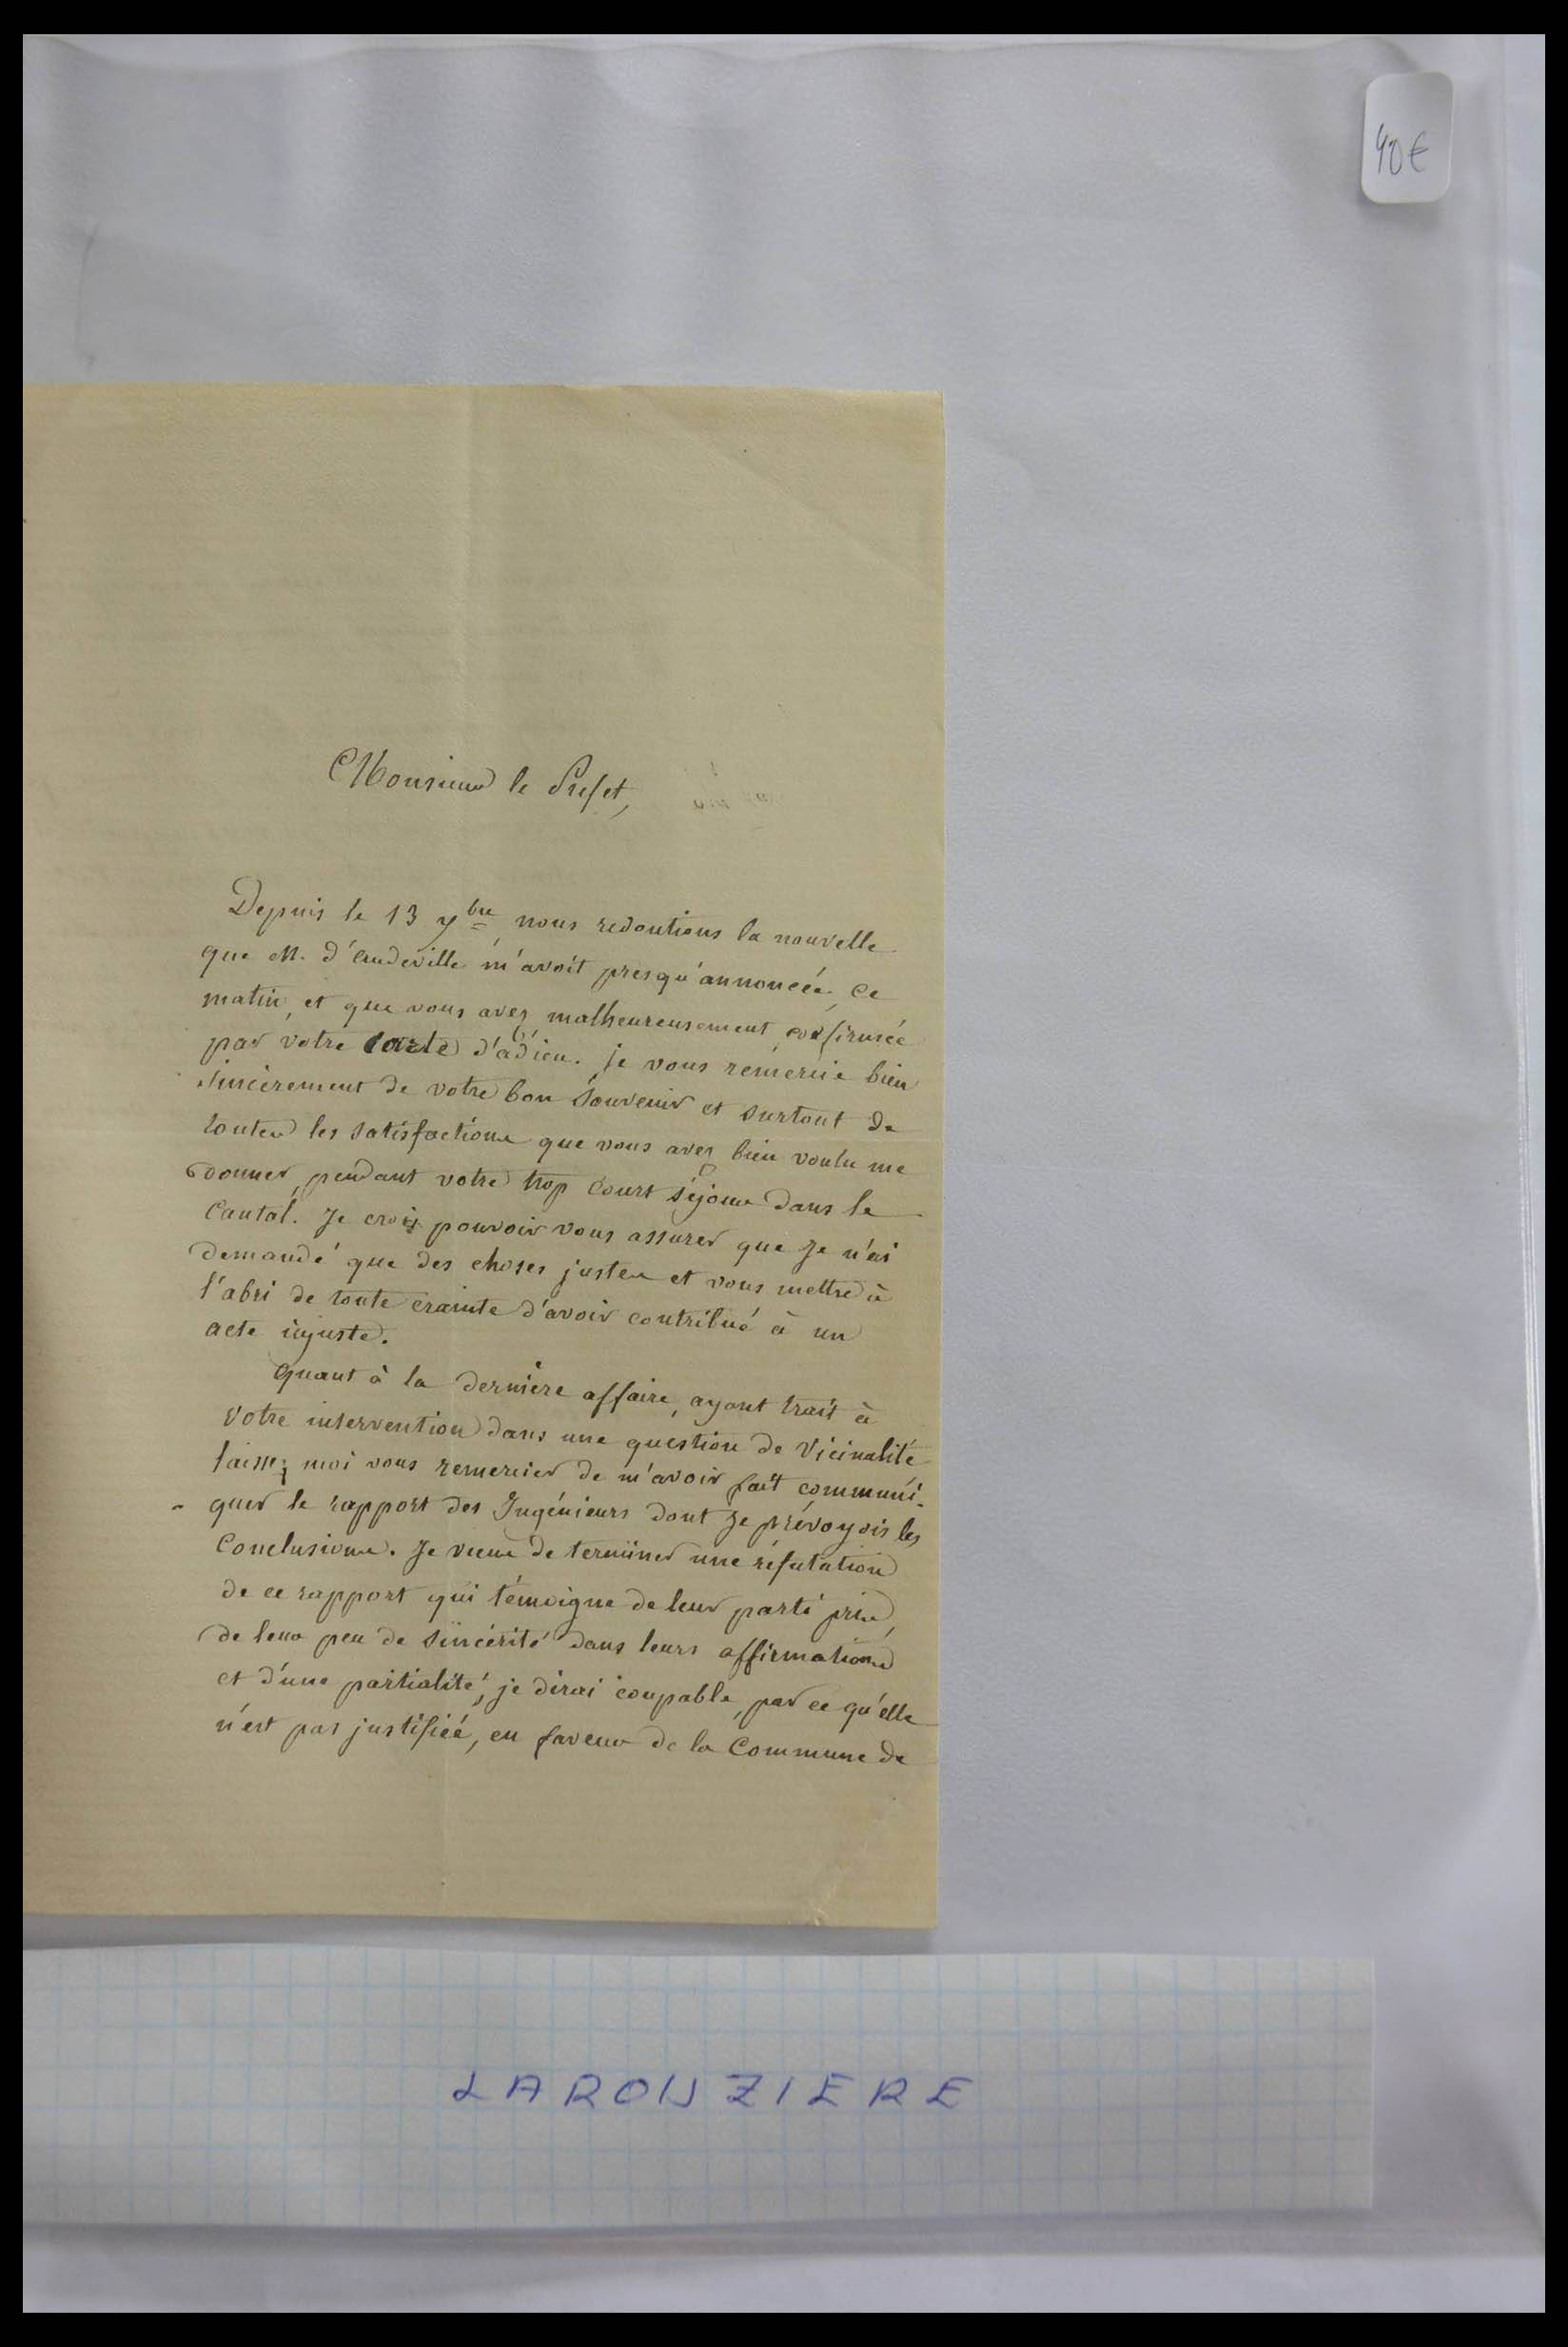 40€
Monsieur le Préfet,
Depuis le 13 7bre nous redoutions la nouvelle
que M. d'Audeville m'avoit presqu'annoncée, ce
matin, et que vous avez malheureusement confirmée
par votre carte d'adieu. je vous remercie bien
sincèrement de votre bon souvenir et surtout de
toutes les satisfactions que vous avez bien voulu me
donner, pendant votre trop court séjour dans le
Cantal. Je crois pouvoir vous assurer que je n'ai
demandé que des choses justes et vous mettre à
l'abri de toute crainte d'avoir contribué à un
acte injuste.
Quant à la dernière affaire, ayant trait à
votre intervention dans une question de Vicinalité
laissez moi vous remercier de m'avoir fait communi-
- quer le rapport des Ingénieurs dont je prévoyois les
Conclusions. Je viens de terminer une réfutation
de ce rapport qui témoigne de leur parti pris,
de leur peu de sincérité dans leurs affirmations
et d'une partialité, je dirai coupable, par ce qu'elle
n'est pas justifiée, en faveur de la Commune de
LAROUZIERE